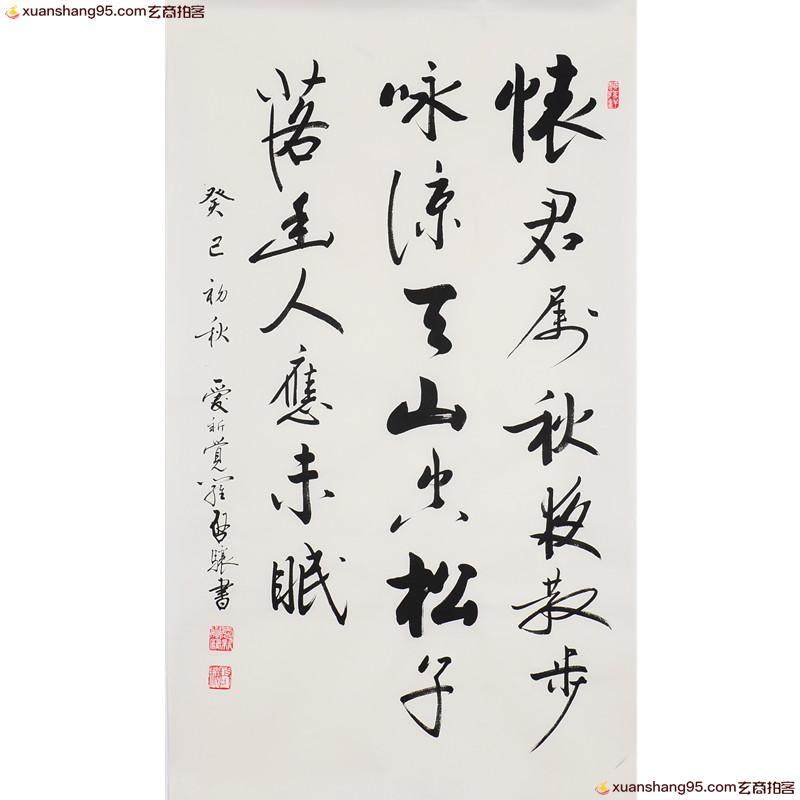 xuanshang95.com玄商拍客
懷君属秋夜散步
咏涼天山空松子
落幽人應未眠
癸巳初秋 愛新覺羅启驤書
xuanshang95.com玄商拍客